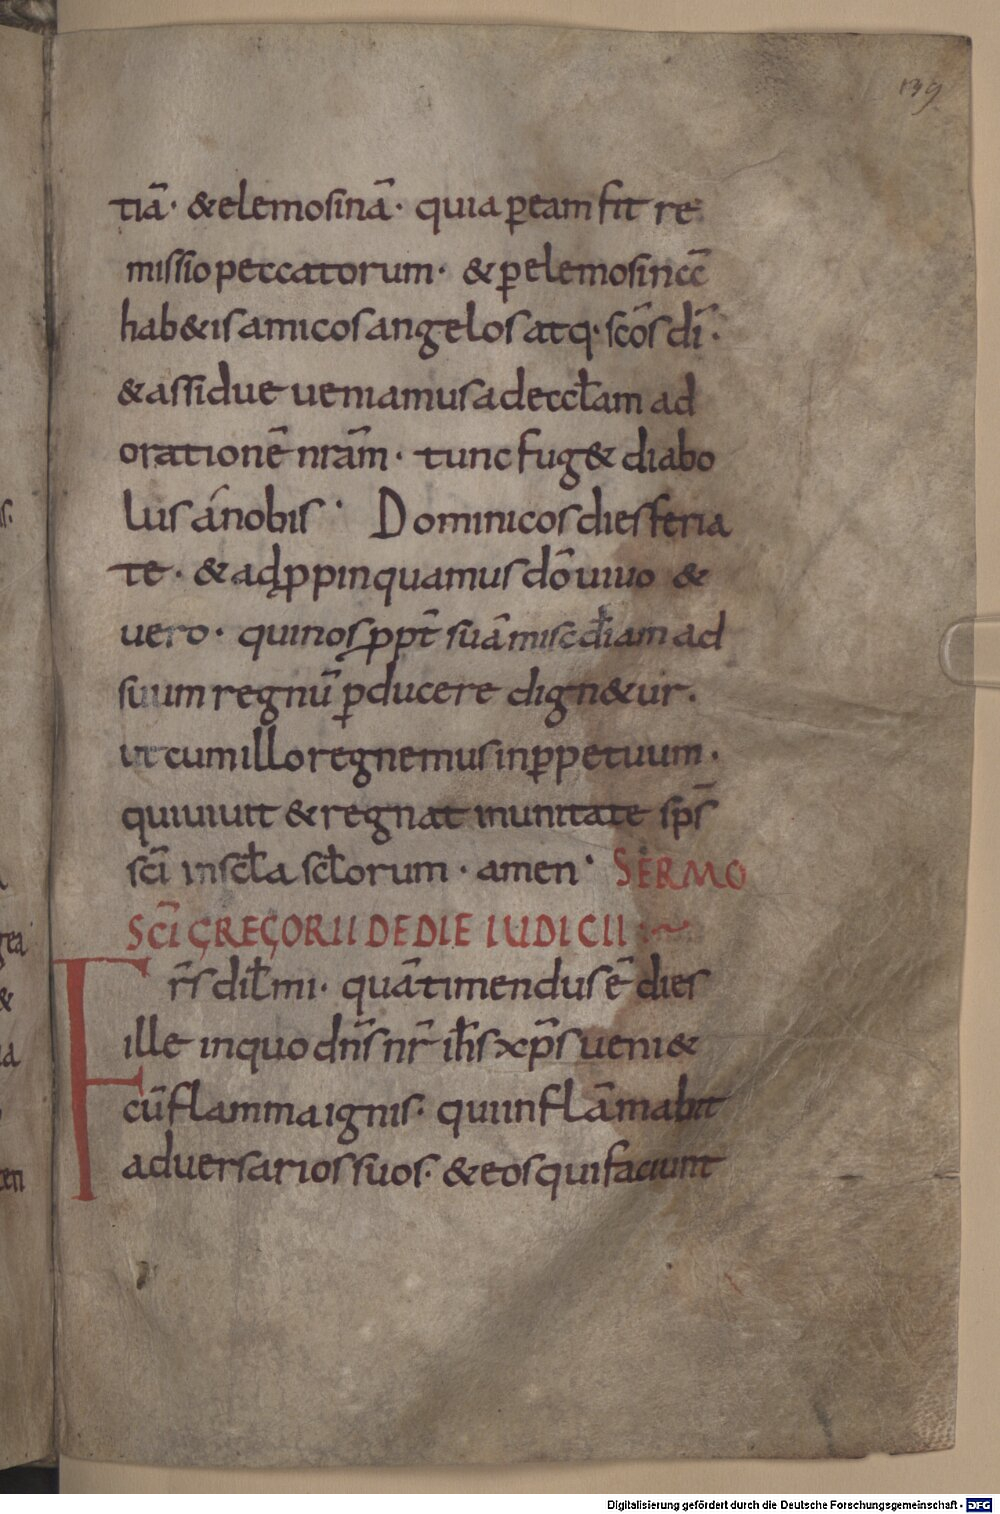 139
tiā · & elemosinā · quia p̄ eam fit re
missio peccatorum · & p̄ elemosincē
hab&is amicos angelos atq · sc̄os dī ·
& assidue ueniamus ad eccl̄am ad
orationē nr̄am · tunc fug& diabo
lus a nobis · Dominicos dies feria
te · & adp̄pinquamus dō uiuo &
uero · qui nos pp̄t suā misc̄diam ad
suum regnū p̄ducere dign&ur ·
ut cum illo regnemus in p̄petuum ·
qui uiuit & regnat in unitate sp̄s
sc̄i in scl̄a scl̄orum · amen · SERMO
SC̄I GREGORII DE DIE IUDICII
Fr̄s dil̄mi · quā timendus ē dies
ille in quo dn̄s nr̄ ih̄s xp̄s ueni&
cū flamma ignis · qui inflāmabit
aduersarios suos · & eos qui faciunt
Digitalisierung gefördert durch die Deutsche Forschungsgemeinschaft - DFG